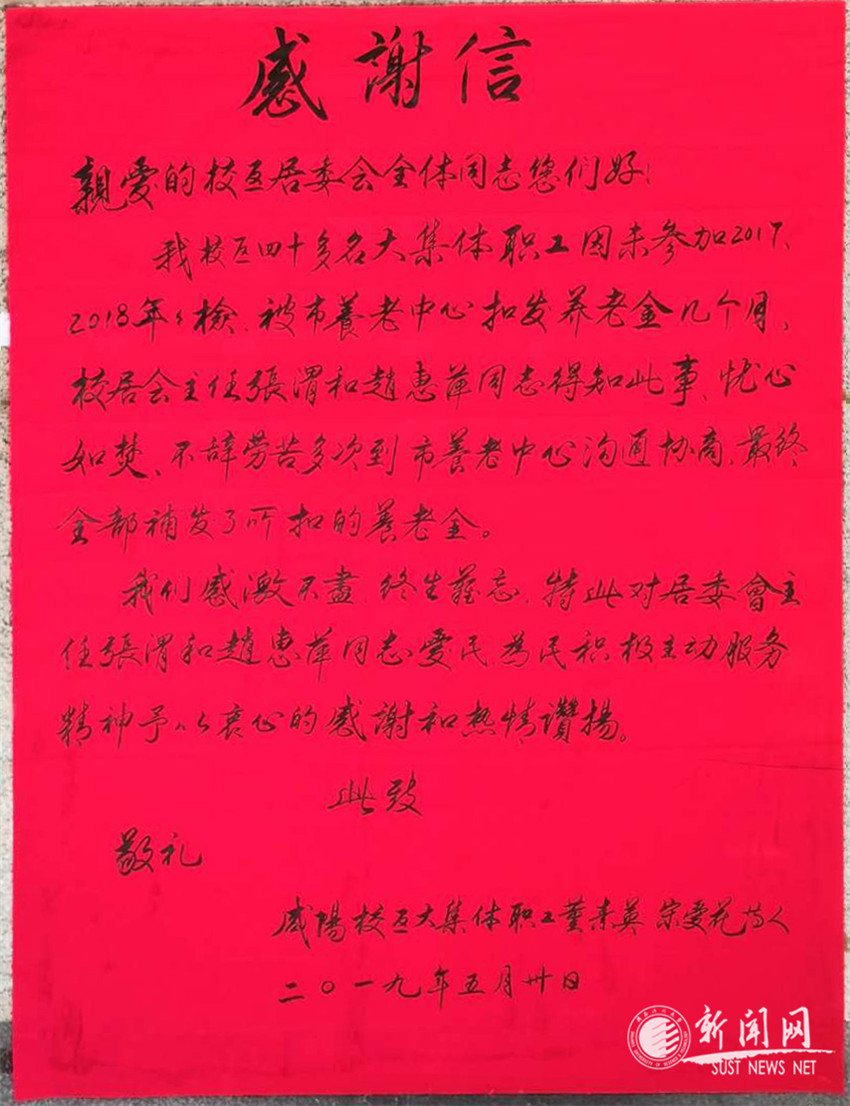 感謝信
親愛的校区居委会全体同志您们好!
我校区四十多名大集体职工因未参加2017、
2018年年檢、被市養老中心扣发养老金几个月,
校居会主任張渭和趙惠萍同志得知此事、忧心
如焚、不辞劳苦多次到市養老中心沟通协商、最终
全部補发了所扣的養老金。
我们感激不盡、终生难忘、特此对居委會主
任張渭和趙惠萍同志爱民為民积极主动服务
精神予以衷心的感謝和热情讚揚。
此致
敬礼
咸陽校区大集体职工董素英 宗爱花等人
二〇一九年五月卅日
新闻网
SUST NEWS NET